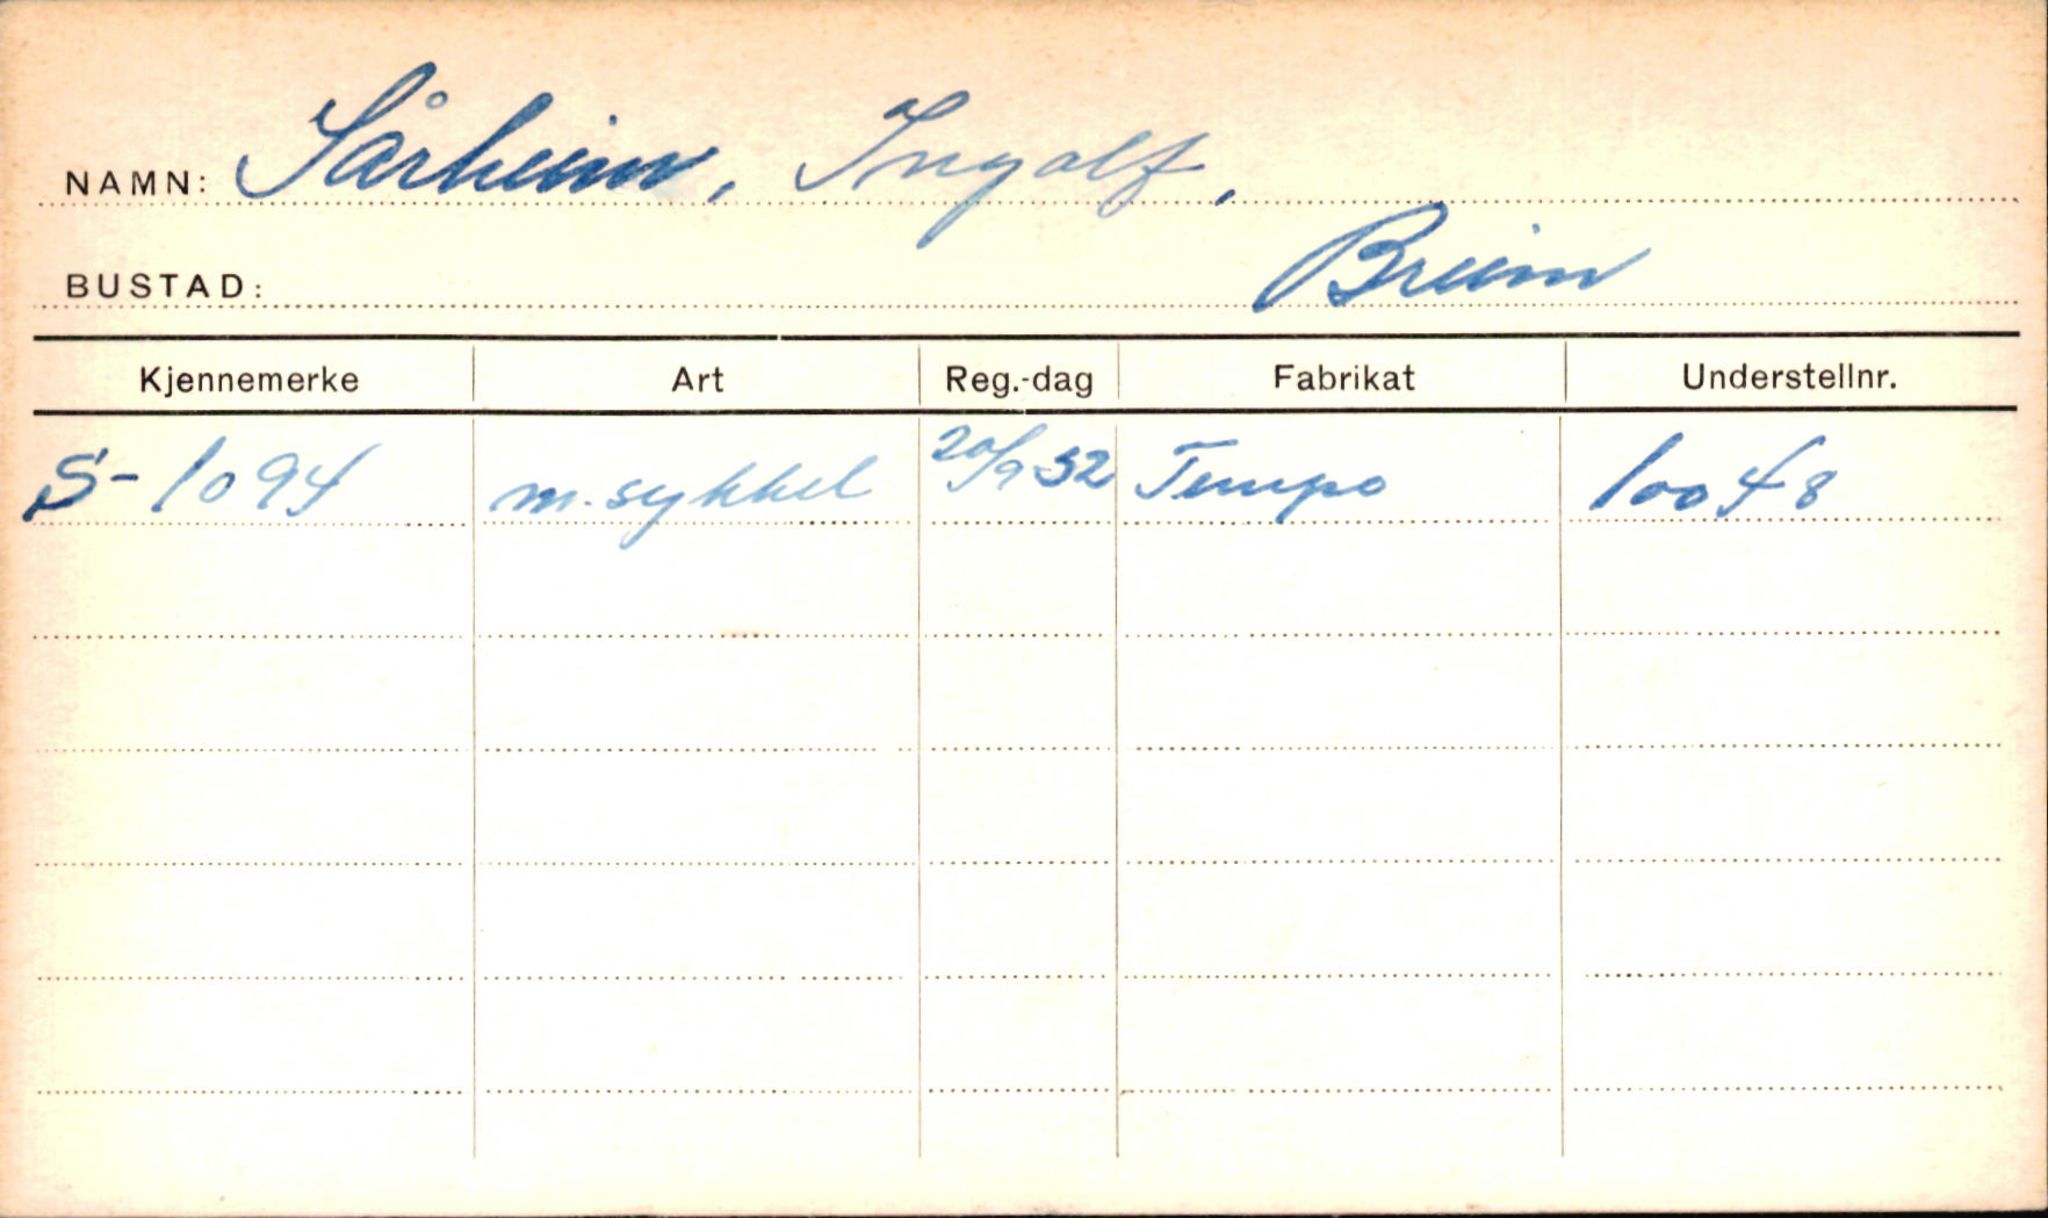 NAMN: Sårheim, Ingolf,
BUSTAD: Breim
Kjennemerke Art Reg.-dag Fabrikat Understellnr.
S-1094 m.sykkel 20/9 52 Tempo 10048